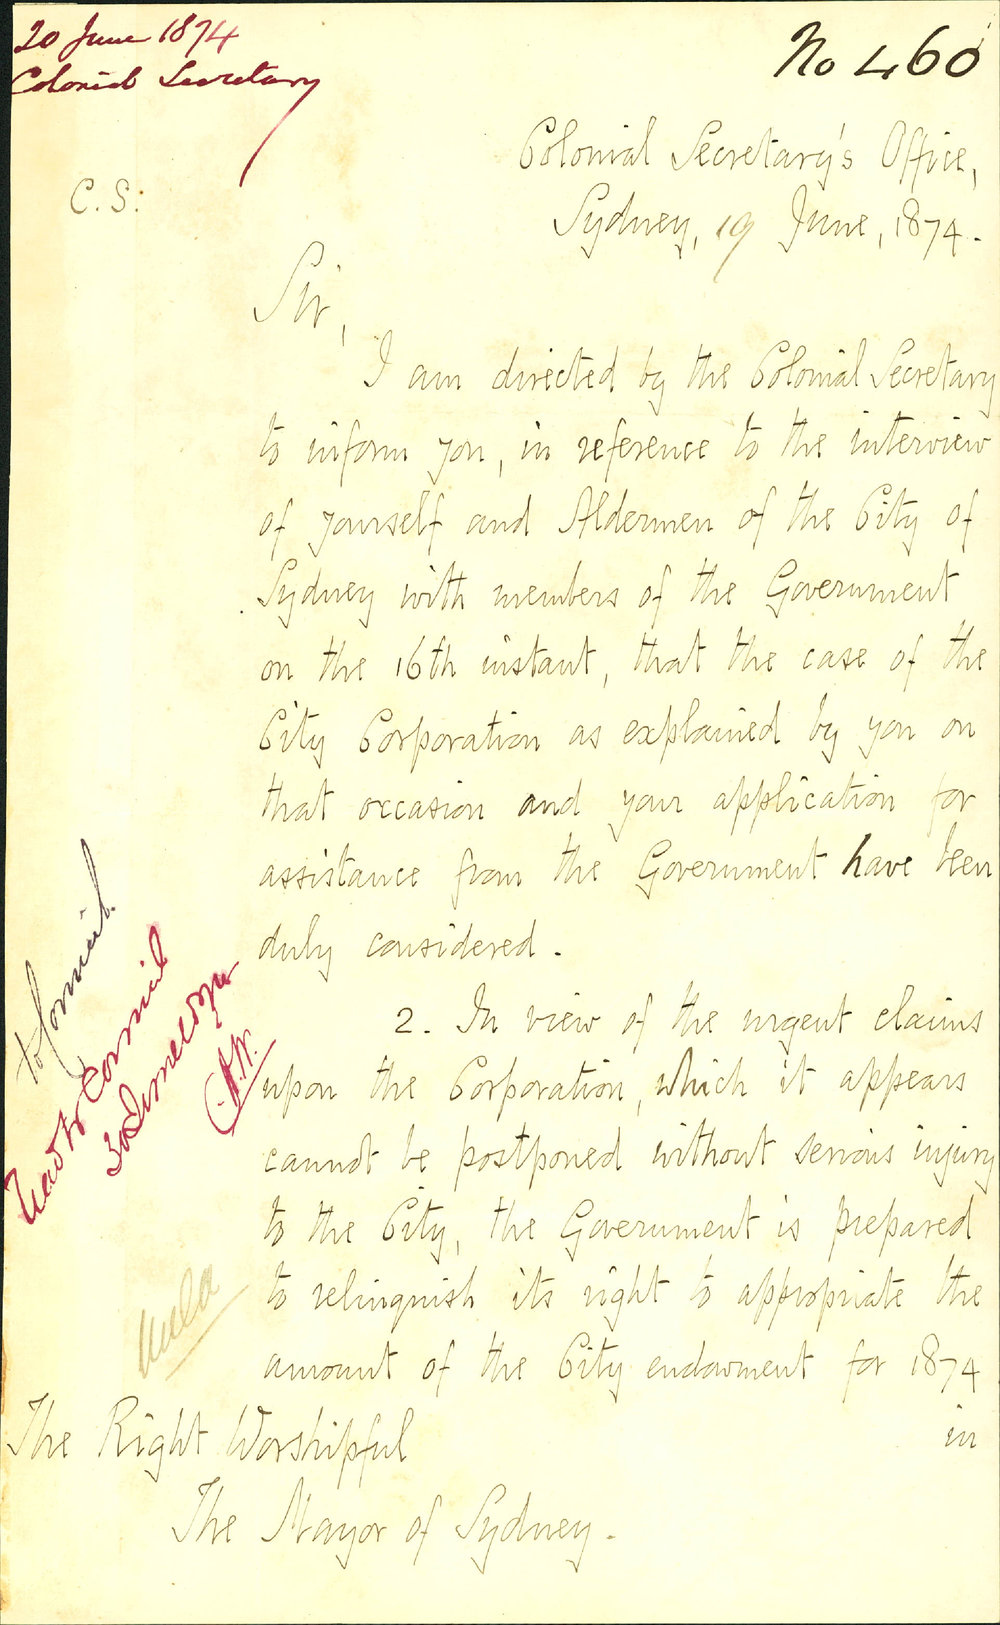 20 June 1874
Colonial Secretary
No 460
Colonial Secretary's Office,
C. S:
Sydney, 19 June, 1874.
Sir,
I am directed by the Colonial Secretary
to inform you, in reference to the interview
of yourself and Aldermen of the City of
Sydney with members of the Government
on the 16th instant, that the case of the
City Corporation as explained by you on
that occasion and your application for
assistance from the Government have been
duly considered.
2. In view of the urgent claims
upon the Corporation, which it appears
cannot be postponed without serious injury
to the City, the Government is prepared
to relinquish its right to appropriate the
amount of the City endowment for 1874
in
The Right Worshipful
The Mayor of Sydney.
to Council
Read to Council